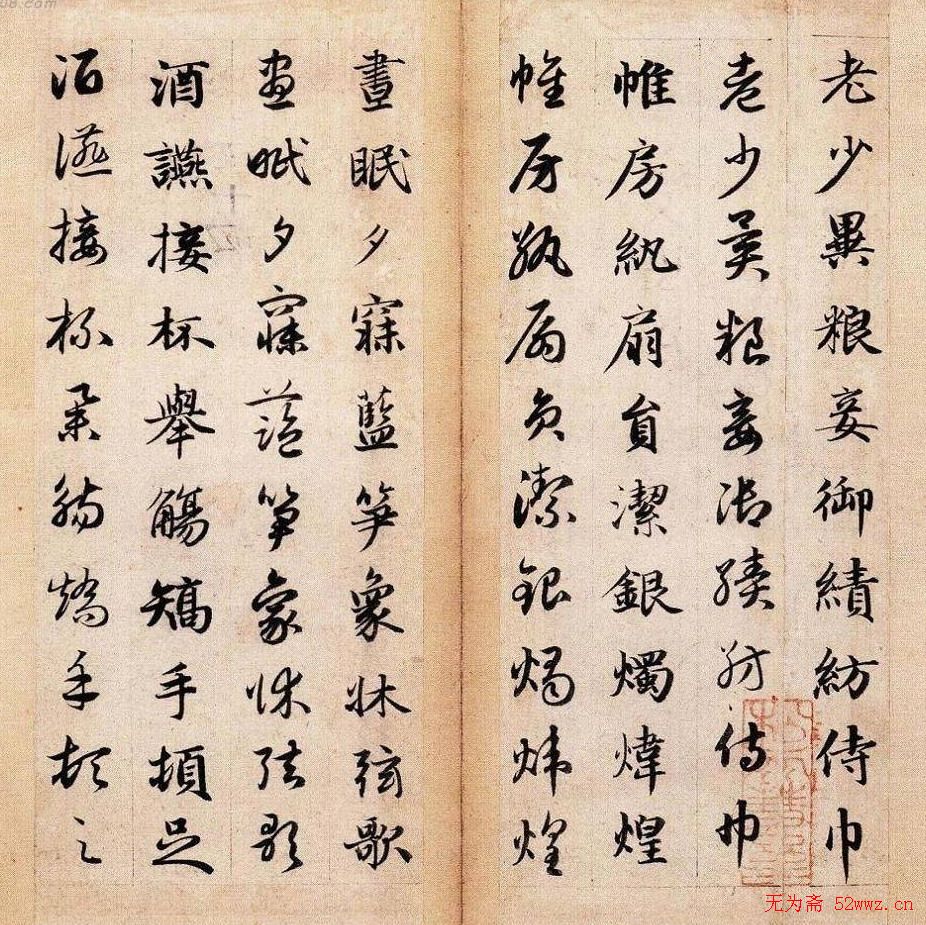 老少異粮妾御績紡侍巾
老少異粮妾御績紡侍巾
帷房紈扇員潔銀燭煒煌
帷房紈扇員潔銀燭煒煌
晝眠夕寐藍笋象牀絃歌
晝眠夕寐藍笋象牀絃歌
酒讌接杯舉觴矯手頓足
酒讌接杯舉觴矯手頓足
无为斋 52wwz.cn
08.com